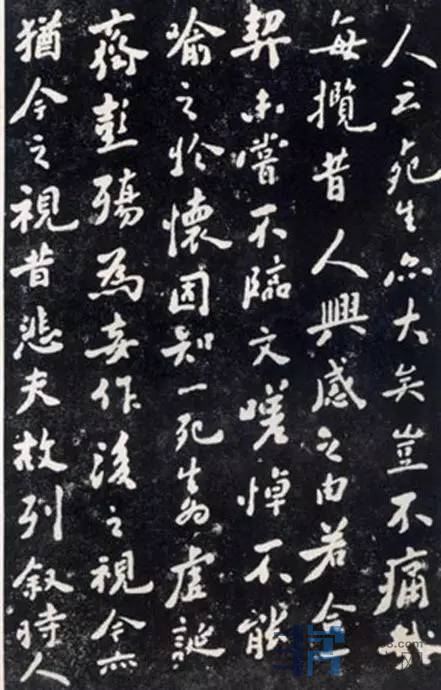 人云死生亦大矣豈不痛哉
每攬昔人興感之由若合一
契未嘗不臨文嗟悼不能
喻之於懷固知一死生為虛誕
齊彭殤為妄作後之視今亦
猶今之視昔悲夫故列敘時人